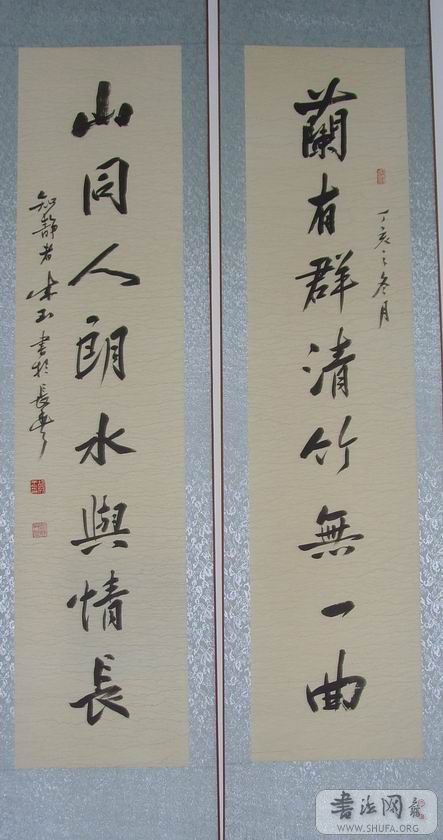 蘭有群清竹無一曲
丁亥之冬月
山同人朗水與情長
知靜者
書於長安
書法网
WWW.SHUFA.ORG